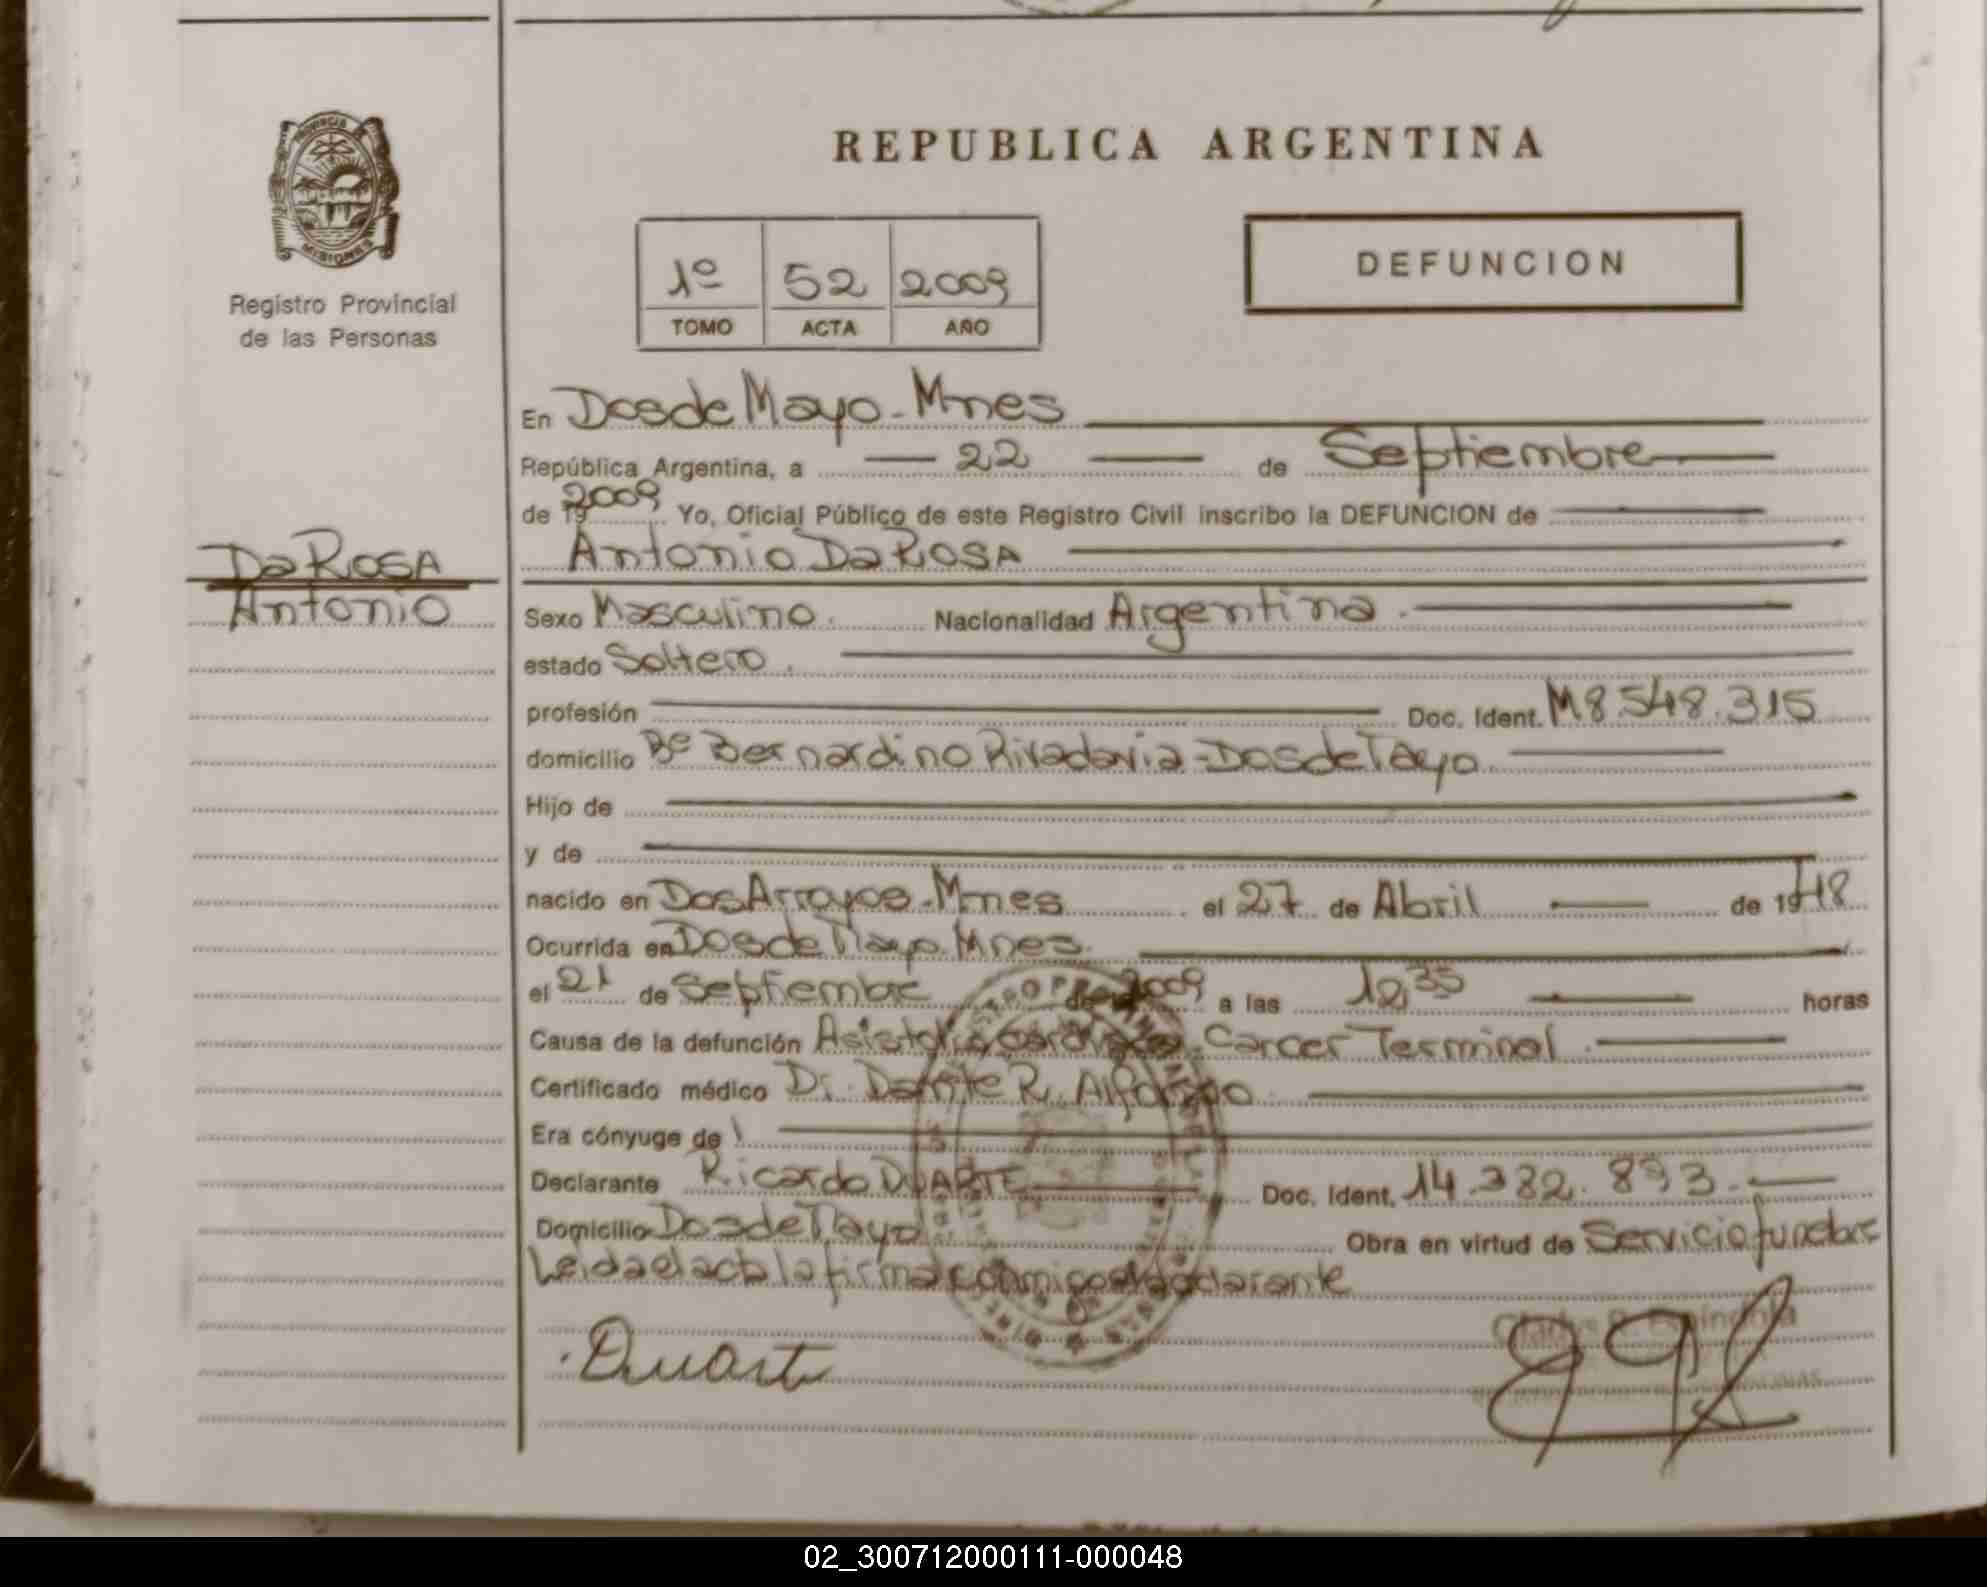 REPUBLICA ARGENTINA
PROVINCIA
MISIONES
Registro Provincial
de las Personas
1º 52 2009
TOMO ACTA AÑO
DEFUNCION
En Dos de Mayo - Mnes
República Argentina, a 22 de Septiembre
de 19 2009 Yo, Oficial Público de este Registro Civil inscribo la DEFUNCION de
Antonio Da ROSA
Da ROSA
Antonio
Sexo Masculino. Nacionalidad Argentina.
estado Soltero.
profesión Doc. Ident. M8.548.315
domicilio Bº Bernardino Rivadavia - Dos de Mayo
Hijo de
y de
nacido en Dos Arroyos - Mnes el 27 de Abril de 19
Ocurrida en Dos de Mayo. Mnes.
el 21 de Septiembre de 2009 a las 12,35 horas
Causa de la defunción Asistolia cardiaca - Carcer Terminal.
Certificado médico Dr. Dante R. Alfonzo
Era cónyuge de
Declarante Ricardo DUARTE Doc. Ident. 14.382.893.
Domicilio Dos de Mayo Obra en virtud de Servicio funebre
Leida el acta la firma conmigo el declarante
Duarte
Gladys R. Espindola
02_300712000111-000048